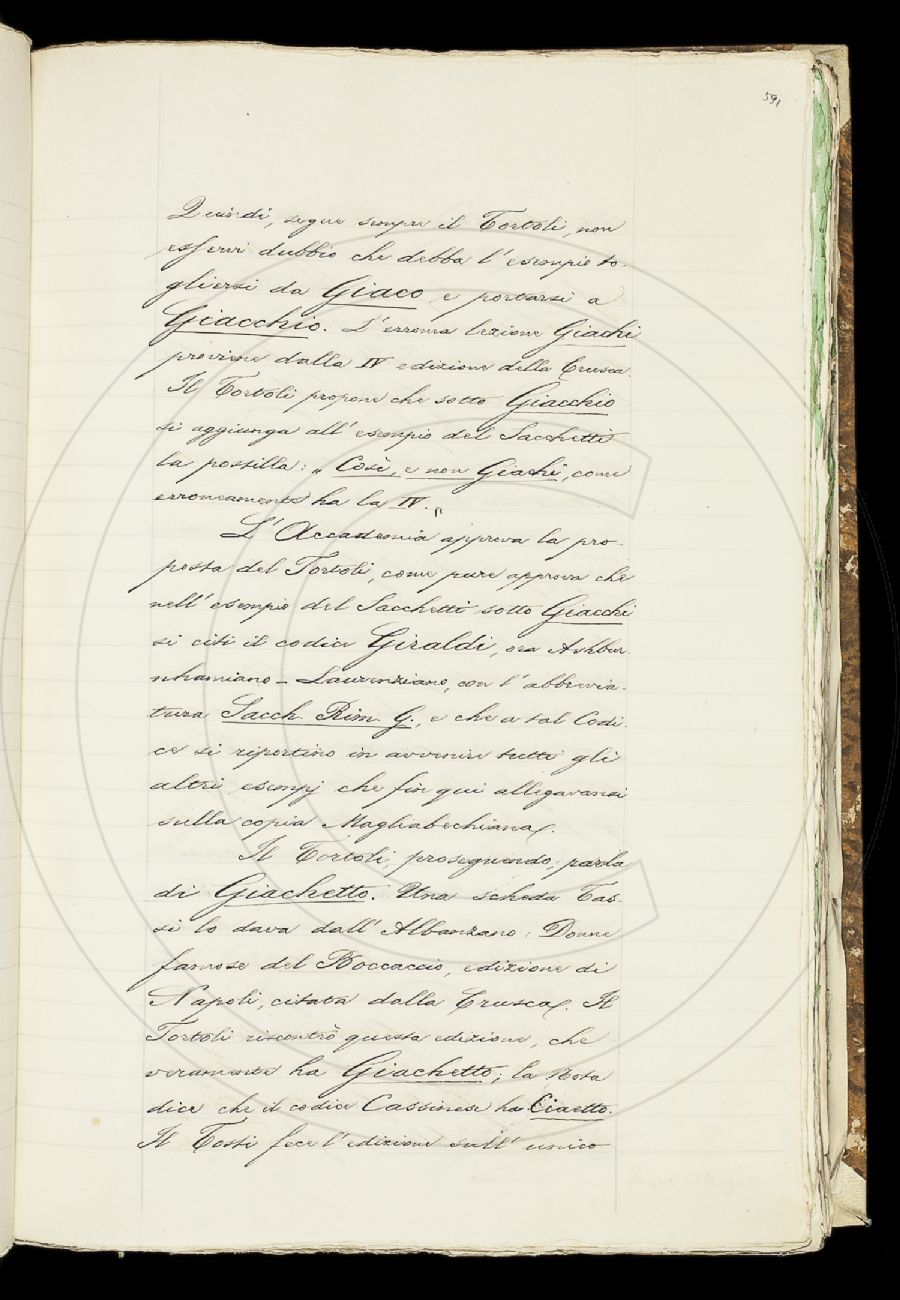 591
Quindi, segue sempre il Tortoli, non
esservi dubbio che debba l'esempio to-
gliersi da Giaco e portarsi a
Giacchio. L'erronea lezione Giachi
provenne dalla IV edizione della Crusca.
Il Tortoli propone che sotto Giacchio
si aggiunga all'esempio del Sacchetti
la postilla: „ Così, e non Giachi, come
erroneamente ha la IV. „
L'Accademia approva la pro-
posta del Tortoli, come pure approva che
nell'esempio del Sacchetti sotto Giacchi
si citi il codice Giraldi, ora Ashbur-
nhamiano-Laurenziano, con l'abbrevia-
tura Sacch. Rim. G., e che a tal Codi-
ce si riportino in avvenire tutti gli
altri esempj che fin qui allegavansi
sulla copia Magliabechiana.
Il Tortoli, proseguendo, parla
di Giachetto. Una scheda Tas-
si lo dava dall'Albanzano: Donne
famose del Boccaccio, edizione di
Napoli, citata dalla Crusca. Il
Tortoli riscontrò questa edizione, che
veramente ha Giachetto; la Nota
dice che il codice Cassinese ha Ciaetto.
Il Tosti fece l'edizione sull'unico